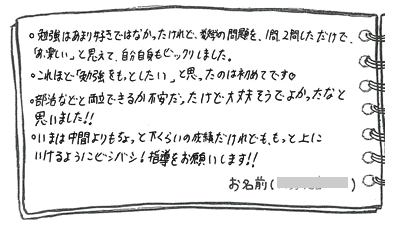 ○勉強はあまり好きではなかったけれど、数学の問題を、1問、2問しただけで、
「お、楽しい」と思えて、自分自身もビックリしました。
○これほど「勉強をもっとしたい」と思ったのは初めてです♡
○部活などと両立できるか不安だったけど大丈夫そうでよかったなと
思いました!!
○いまは中間よりもちょっと下くらいの成績だけれども、もっと上に
いけるようにビシバシ!指導をお願いします!!
お名前( )